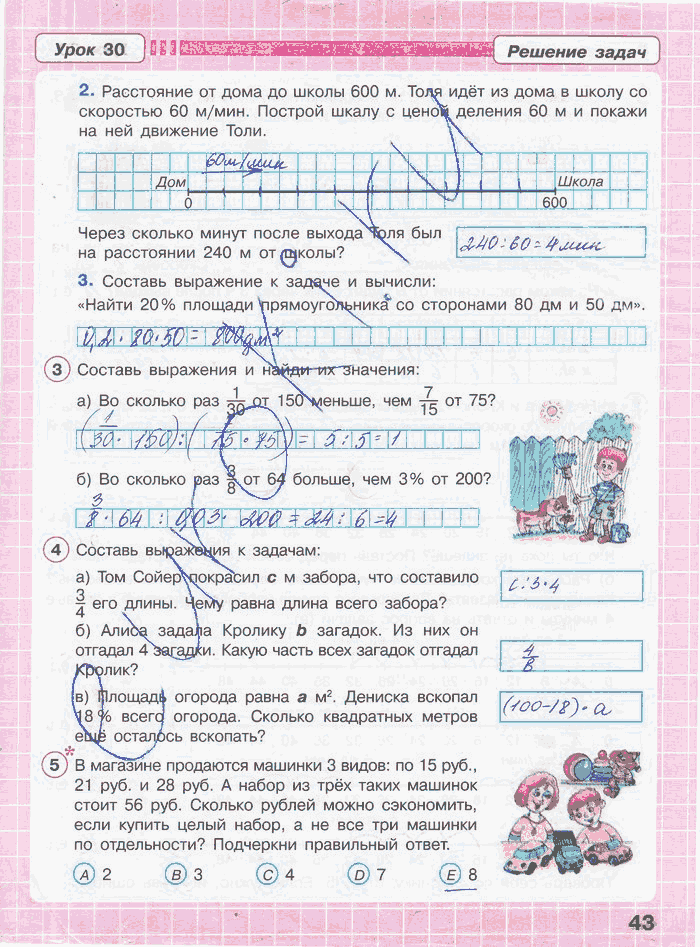 Урок 30
Решение задач
2. Расстояние от дома до школы 600 м. Толя идёт из дома в школу со
скоростью 60 м/мин. Построй шкалу с ценой деления 60 м и покажи
на ней движение Толи.
60м/мин
Дом
Школа
0
600
Через сколько минут после выхода Толя был
на расстоянии 240 м от школы?
240:60=4мин
3. Составь выражение к задаче и вычисли:
«Найти 20% площади прямоугольника со сторонами 80 дм и 50 дм».
0,2·80·50= 800дм²
3 Составь выражения и найди их значения:
а) Во сколько раз 1/30 от 150 меньше, чем 7/15 от 75?
(1/30· 150):( /15 · 75) = 5:5=1
б) Во сколько раз 3/8 от 64 больше, чем 3% от 200?
3/8· 64 : 0,03· 200 = 24 : 6 =4
4 Составь выражения к задачам:
а) Том Сойер покрасил c м забора, что составило
3/4 его длины. Чему равна длина всего забора?
c:3·4
б) Алиса задала Кролику b загадок. Из них он
отгадал 4 загадки. Какую часть всех загадок отгадал
Кролик?
4/в
в) Площадь огорода равна a м². Дениска вскопал
18% всего огорода. Сколько квадратных метров
ещё осталось вскопать?
(100-18)·a
5* В магазине продаются машинки 3 видов: по 15 руб.,
21 руб. и 28 руб. А набор из трёх таких машинок
стоит 56 руб. Сколько рублей можно сэкономить,
если купить целый набор, а не все три машинки
по отдельности? Подчеркни правильный ответ.
A 2 B 3 C 4 D 7 E 8
43